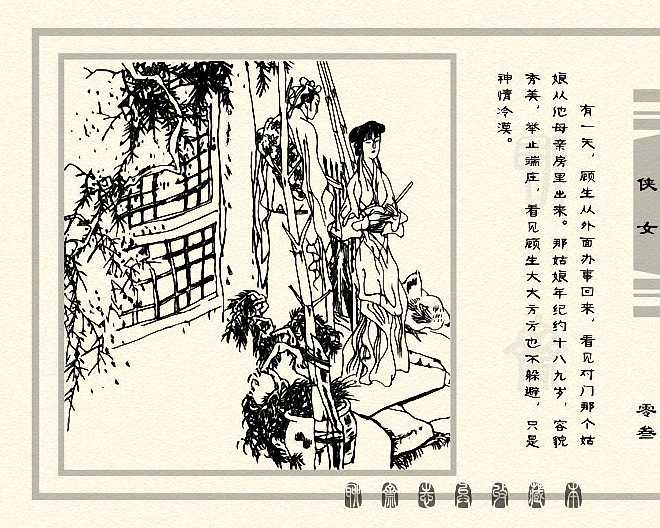 侠女
零叁
有一天，顾生从外面办事回来，看见对门那个姑
娘从他母亲房里出来。那姑娘年纪约十八九岁，容貌
秀美，举止端庄，看见顾生大大方方也不躲避，只是
神情冷漠。